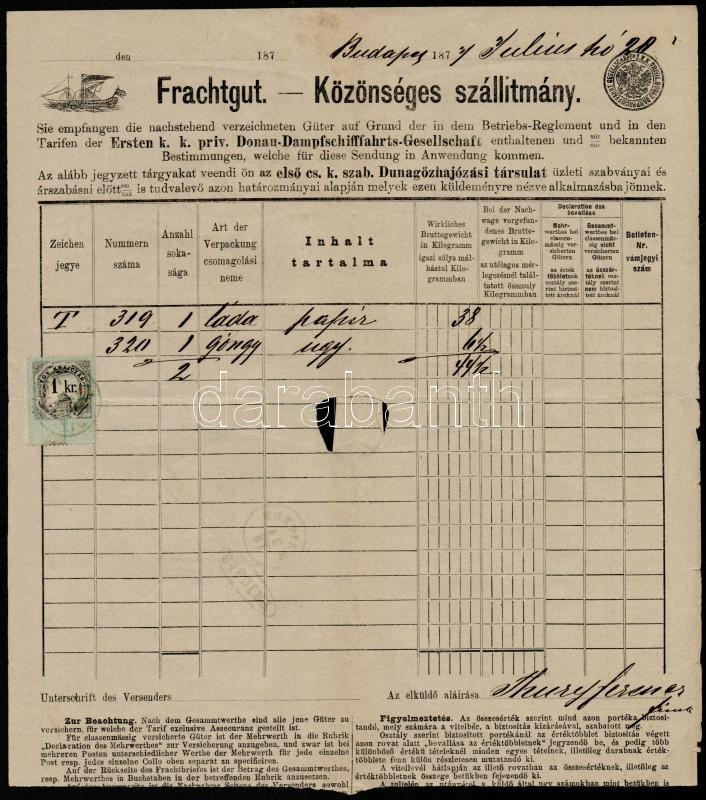 den 187 Budapest 187 Julius hó 20
Frachtgut. — Közönséges szállitmány.
Sie empfangen die nachstehend verzeichneten Güter auf Grund der in dem Betriebs-Reglement und in den
Tarifen der Ersten k. k. priv. Donau-Dampfschifffahrts-Gesellschaft enthaltenen und mir uns bekannten
Bestimmungen, welche für diese Sendung in Anwendung kommen.
Az alább jegyzett tárgyakat veendi ön az első cs. k. szab. Dunagőzhajózási társulat üzleti szabványai és
árszabásai előtt is tudvalevő azon határozmányai alapján melyek ezen küldeményre nézve alkalmazásba jönnek.
Zeichen jegye
Nummern száma
Anzahl soka- sága
Art der Verpackung csomagolási neme
Inhalt tartalma
Wirkliches Bruttogewicht in Kilogramm igazi súlya mál- hástul Kilo- grammban
Bei der Nach- wage vorgefun- denes Brutto- gewicht in Kilo- gramm az utólagos mér- legezésnél talál- tatott összsuly Kilogrammban
Declaration des bevallása
Mehr- werthes bei classen- mässig ver- sicherten Gütern az érték többletnek osztály sze- rint biztosi- tott áruknál
Gesammt- werthes bei classenmäs- sig nicht versicherten Gütern az összér- téknek osz- tály szerint nem biztosi- tott áruknál
Bolleten- Nr. vámjegyi szám
T 319 1 láda papir 38
320 1 göngy ugy. 6½
2 44½
1 kr.
darabanth
Unterschrift des Versenders Az elküldő aláirása Thury Ferencz
Zur Beachtung. Nach dem Gesammtwerthe sind alle jene Güter zu
versichern, für welche der Tarif exclusive Assecuranz gestellt ist.
Für classenmässig versicherte Güter ist der Mehrwerth in die Rubrik
„Declaration des Mehrwerthes“ zur Versicherung anzugeben, und zwar ist bei
mehreren Posten unterschiedlicher Werthe der Mehrwerth für jede einzelne
Post resp. jedes einzelne Collo oben separat zu specificiren.
Auf der Rückseite des Frachtbriefes ist der Betrag des Gesammtwerthes,
resp. Mehrwerthes in Buchstaben in der betreffenden Rubrik anzusetzen.
Figyelmeztetés. Az összesérték szerint mind azon portéka biztosi-
tandó, mely számára a vitelbér, a biztositás kizárásával, szabatott meg.
Osztály szerint biztositott portékánál az értéktöbblet biztositás végett
azon rovat alatt „bevallása az értéktöbbletnek“ jegyzendő be, és pedig több
különböző értékü tételeknél minden egyes tételnek, illetőleg darabnak érték-
többlete fenn külön részletesen mutatandó ki.
A vitellevél hátlapján az illető rovatban az összesértéknek, illetőleg az
értéktöbbletnek összege betükben fejezendő ki.